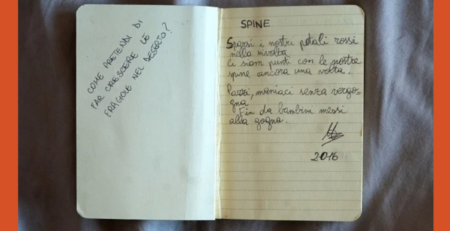 COME PRETENDI DI
FAR CRESCERE LE
FRAGOLE NEL DESERTO?
SPINE
Sparsi i nostri petali rossi
nella nivata
Ci siam punti con le nostre
spine ancora una volta.
Pazzi, maniaci senza vergo-
gna
Fin da bambini messi
alla gogna.
2016